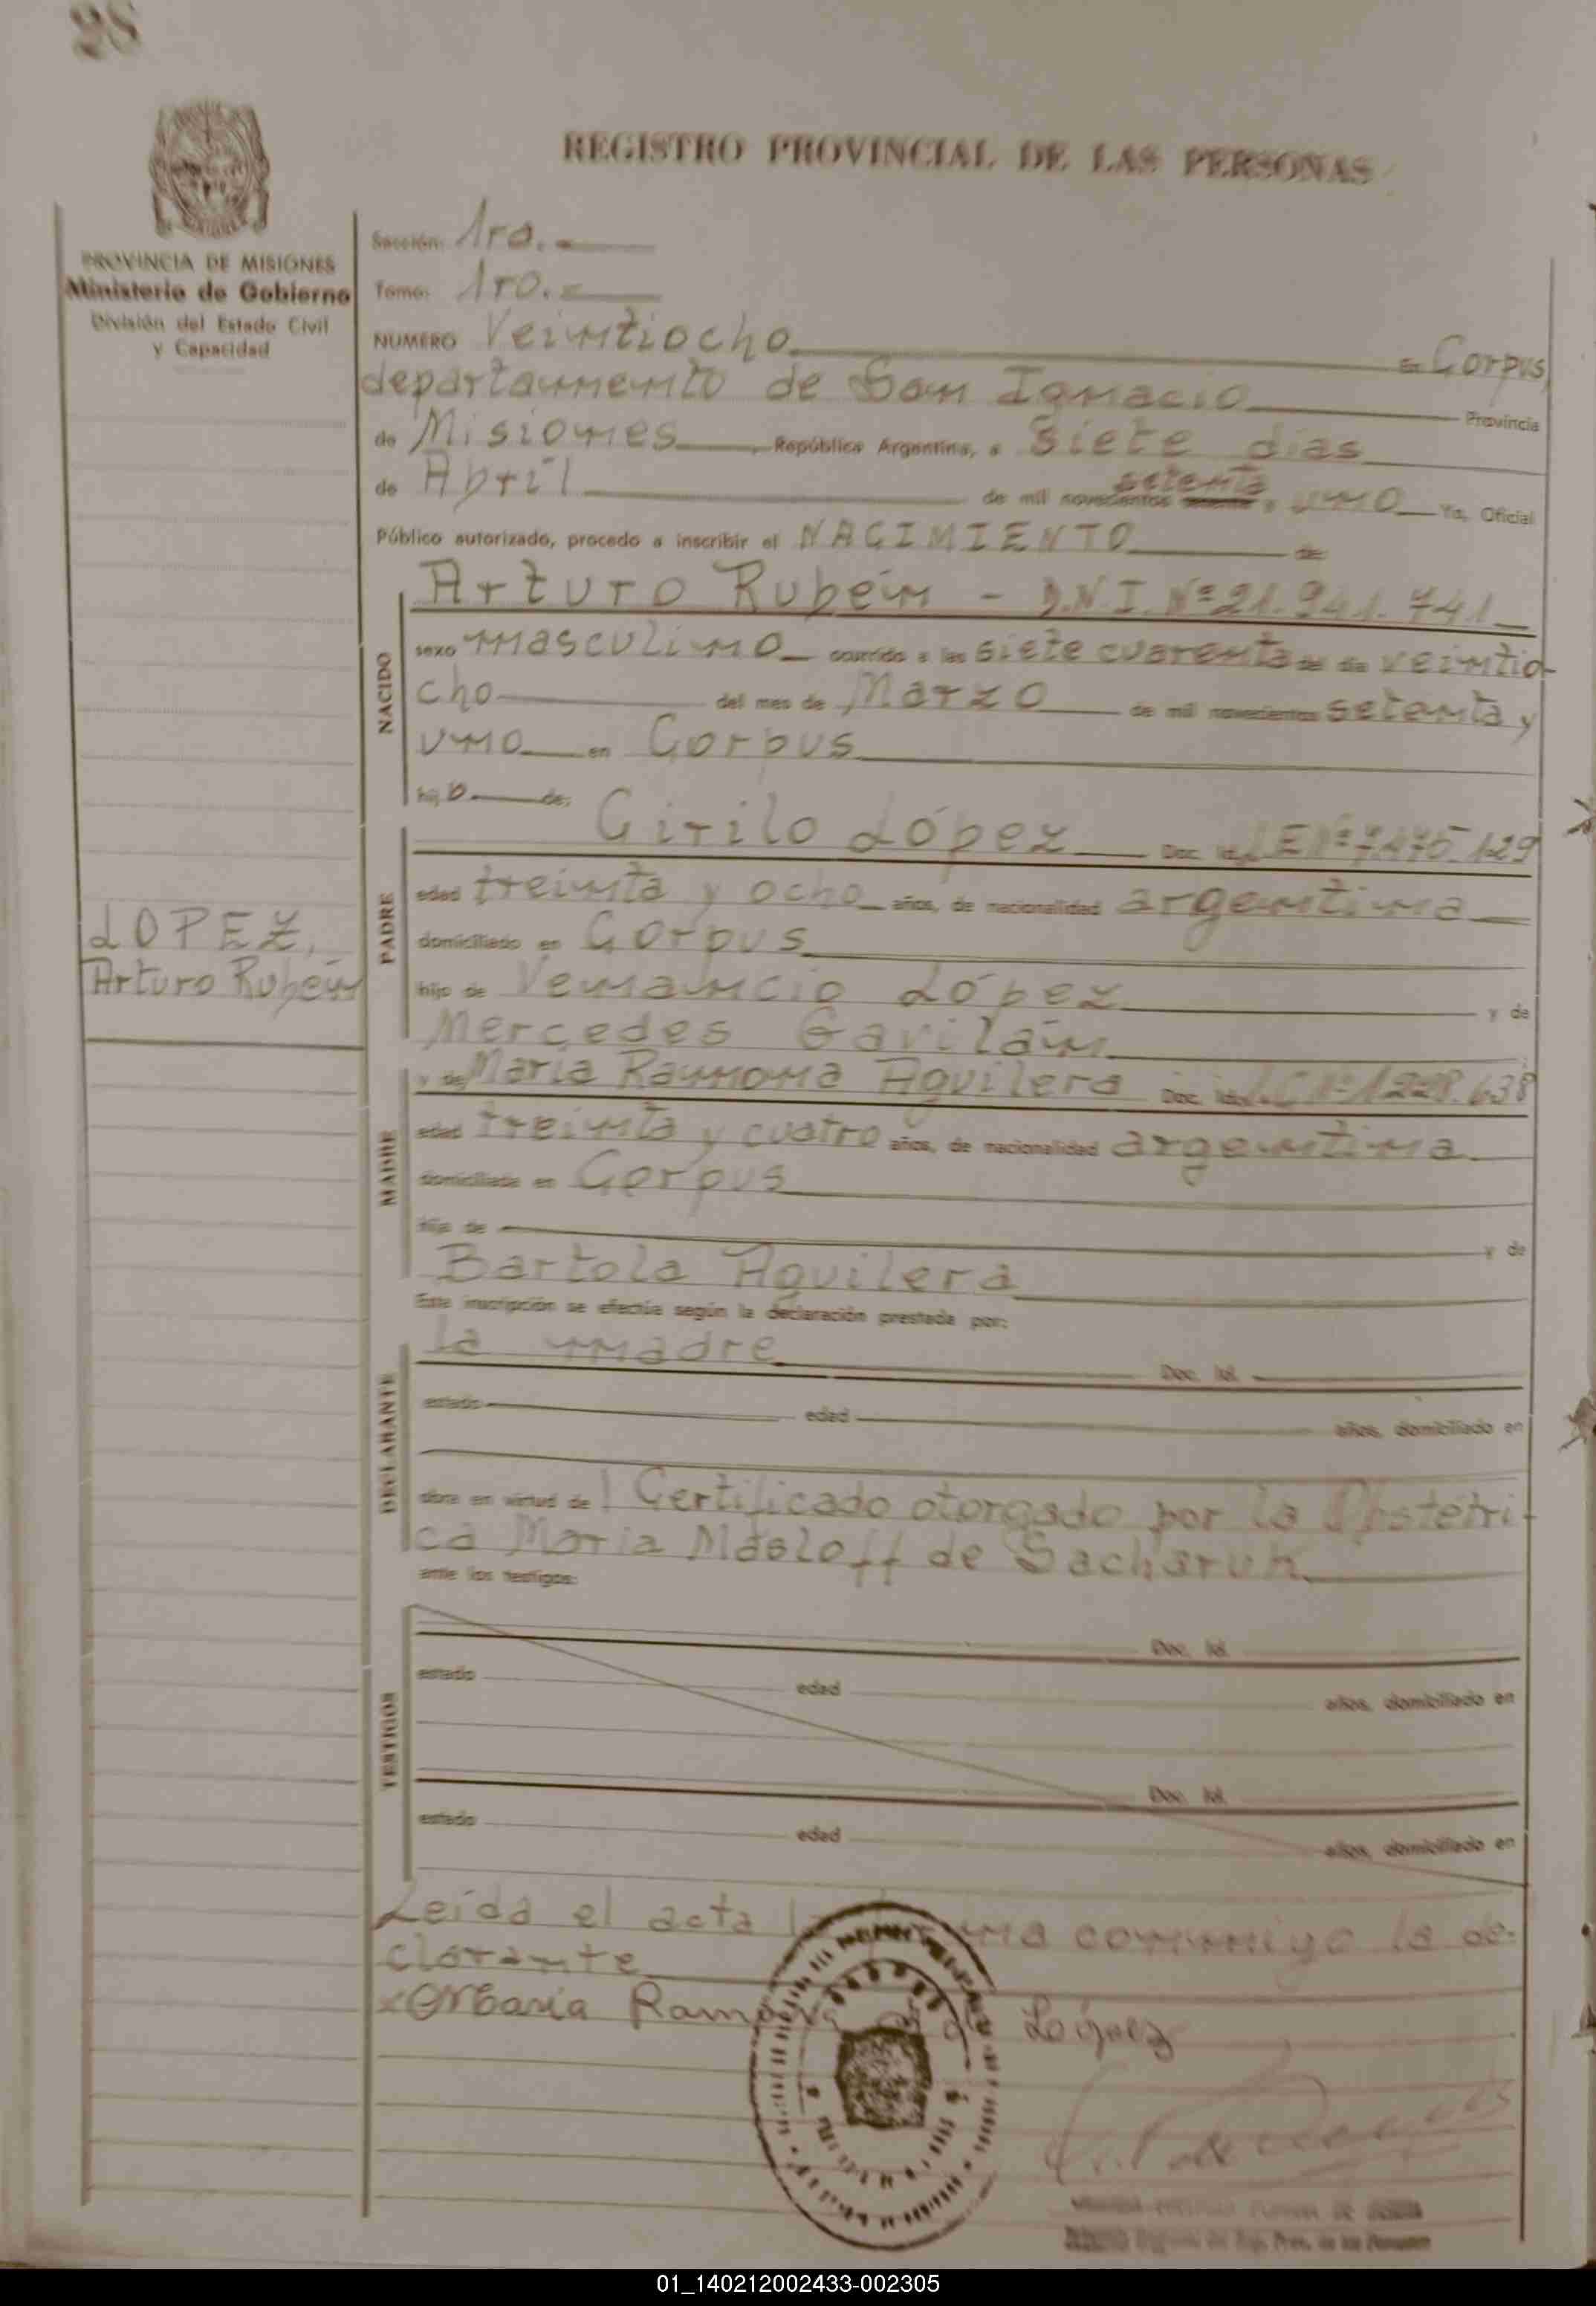 28
REGISTRO PROVINCIAL DE LAS PERSONAS
PROVINCIA DE MISIONES
Ministerio de Gobierno
División del Estado Civil
y Capacidad
Sección: 1ra.=
Tomo: 1ro.=
NUMERO Veintiocho en Corpus,
departamento de San Ignacio Provincia
de Misiones República Argentina, a Siete días
de Abril de mil novecientos setenta y uno Yo, Oficial
Público autorizado, procedo a inscribir el NACIMIENTO de
Arturo Rubén - D.N.I. Nº 21.941.741
NACIDO
sexo masculino ocurrido a las siete cuarenta del día veintio-
cho del mes de Marzo de mil novecientos setenta y
uno en Corpus
hijo de:
PADRE
Cirilo López Doc. Id. L.E Nº 7.475.129
edad treinta y ocho años, de nacionalidad argentina
domiciliado en Corpus
hijo de Venancio López y de
Mercedes Gavilán
LOPEZ,
Arturo Rubén
MADRE
y de María Ramona Aguilera Doc. Id. L.C Nº 1.228.638
edad treinta y cuatro años, de nacionalidad argentina
domiciliada en Corpus
hija de y de
Bartola Aguilera
Esta inscripción se efectúa según la declaración prestada por:
DECLARANTE
la madre Doc. Id.
estado edad años, domiciliado en
obra en virtud de l Certificado otorgado por la Obstétri-
ca María Masloff de Sacharuk
ante los testigos:
TESTIGOS
Doc. Id.
estado edad años, domiciliado en
Doc. Id.
estado edad años, domiciliado en
Leída el acta la conmigo la de-
clarante
Ramona de López
01_140212002433-002305